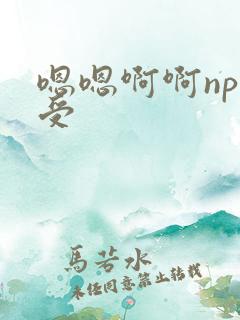 嗯嗯啊啊np
受
馬苦水
未经同意禁止转载